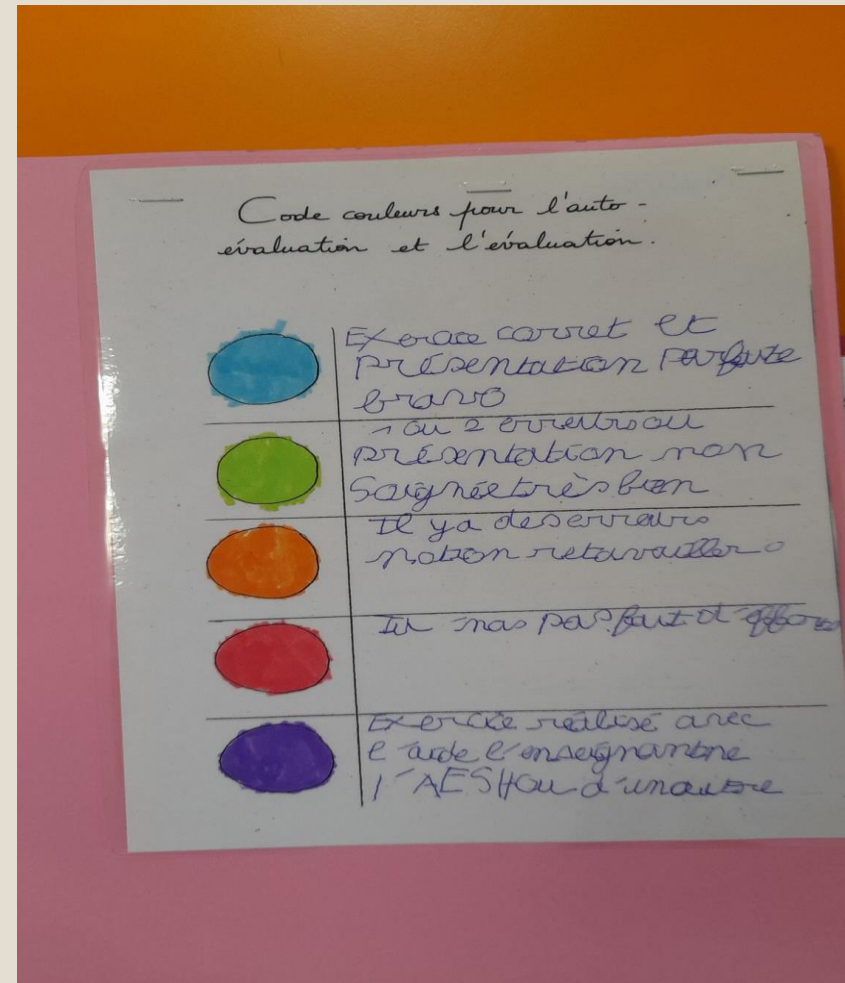 Code couleurs pour l'auto-
évaluation et l'évaluation.
Exercice corret et
présentation parfaite
bravo
1 ou 2 erreurs ou
présentation non
soignée très bien
Il y a des erreurs
notion retravailler
Tu n'as pas fait d'efforts
Exercice réalisé avec
l'aide l'enseignante
l'AESH ou d'un autre